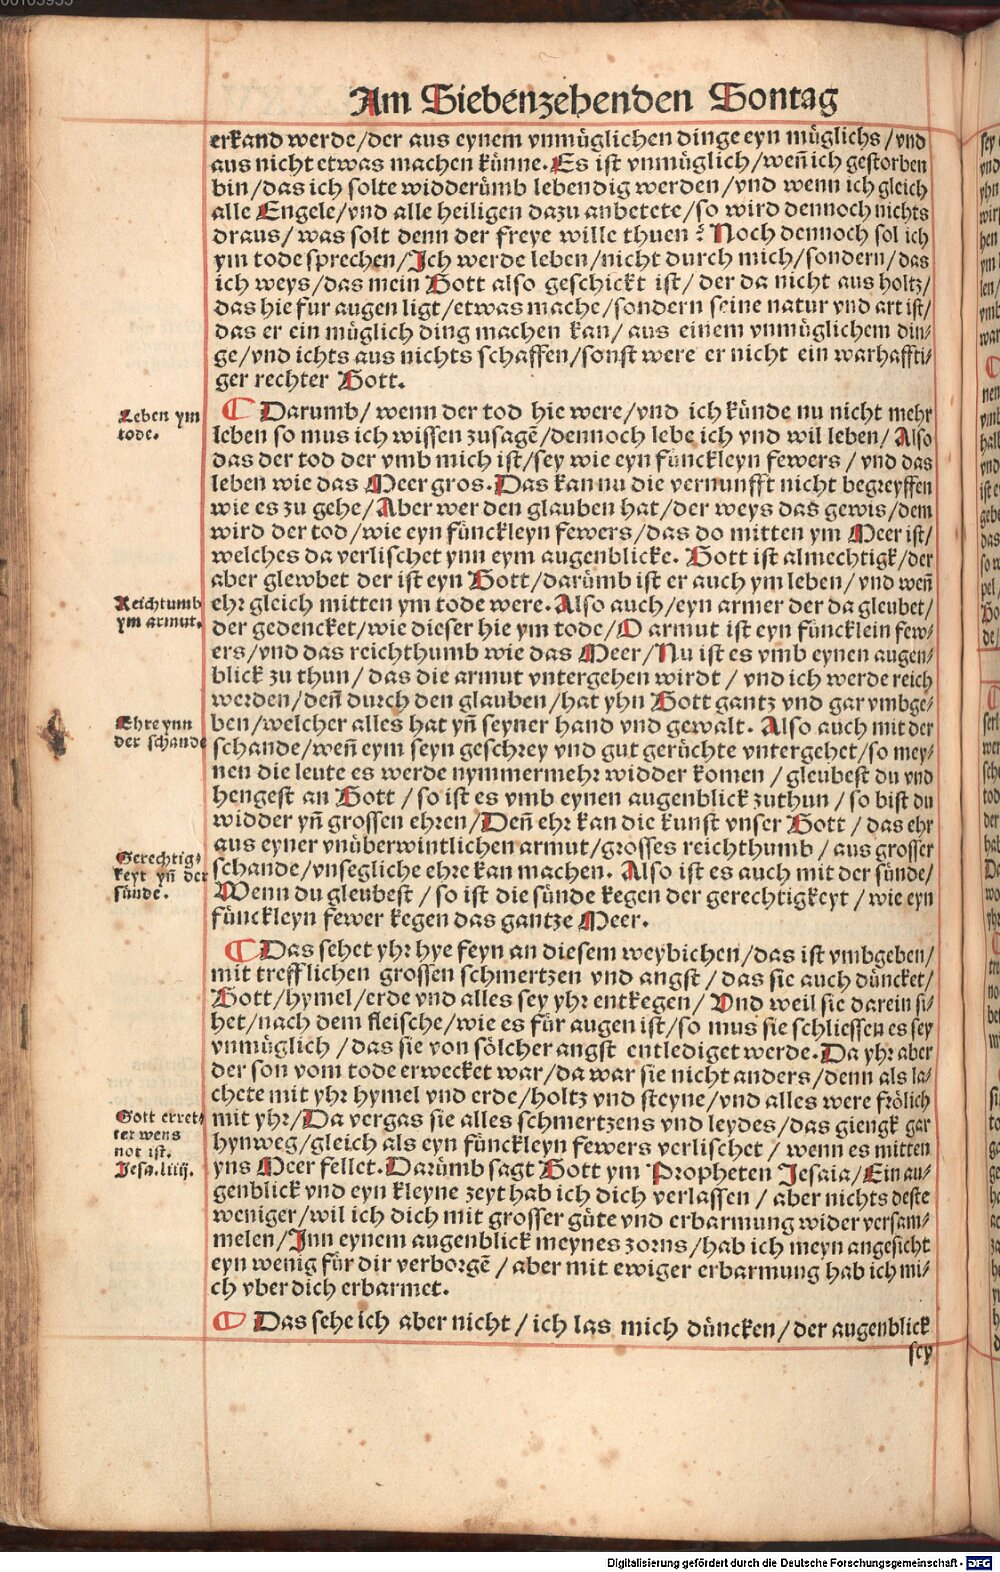 Am Siebenzehenden Sontag
erkand werde/der aus eynem vnmüglichen dinge eyn müglichs/vnd
aus nicht etwas machen künne. Es ist vnmüglich/weñ ich gestorben
bin/das ich solte widderümb lebendig werden/vnd wenn ich gleich
alle Engele/vnd alle heiligen dazu anbetete/so wird dennoch nichts
draus/was solt denn der freye wille thuen? Noch dennoch sol ich
ym tode sprechen/Ich werde leben/nicht durch mich/sondern/das
ich weys/das mein Gott also geschickt ist/der da nicht aus holtz/
das hie fur augen ligt/etwas mache/sondern seine natur vnd art ist/
das er ein müglich ding machen kan/aus einem vnmüglichem din⸗
ge/vnd ichts aus nichts schaffen/sonst were er nicht ein warhaffti⸗
ger rechter Gott.
Leben ym
tode.
¶ Darumb/wenn der tod hie were/vnd ich künde nu nicht mehr
leben so mus ich wissen zusagē/dennoch lebe ich vnd wil leben/Also
das der tod der vmb mich ist/sey wie eyn fünckleyn fewers/vnd das
leben wie das Meer gros. Das kan nu die vernunfft nicht begreyffen
wie es zu gehe/Aber wer den glauben hat/der weys das gewis/dem
wird der tod/wie eyn fünckleyn fewers/das do mitten ym Meer ist/
welches da verlischet ynn eym augenblicke. Gott ist almechtigk/der
aber glewbet der ist eyn Gott/darümb ist er auch ym leben/vnd weñ
Reichtumb
ym armut.
ehr gleich mitten ym tode were. Also auch/eyn armer der da gleubet/
der gedencket/wie dieser hie ym tode/O armut ist eyn füncklein few⸗
ers/vnd das reichthumb wie das Meer/Nu ist es vmb eynen augen⸗
blick zu thun/das die armut vntergehen wirdt/vnd ich werde reich
werden/deñ durch den glauben/hat yhn Gott gantz vnd gar vmbge⸗
Ehre ynn
der schande
ben/welcher alles hat yñ seyner hand vnd gewalt. Also auch mit der
schande/weñ eym seyn geschrey vnd gut gerüchte vntergehet/so mey⸗
nen die leute es werde nymmermehr widder komen/gleubest du vnd
hengest an Gott/so ist es vmb eynen augenblick zuthun/so bist du
widder yñ grossen ehren/Deñ ehr kan die kunst vnser Gott/das ehr
aus eyner vnüberwintlichen armut/grosses reichthumb/aus grosser
Gerechtig⸗
keyt yñ der
sünde.
schande/vnsegliche ehre kan machen. Also ist es auch mit der sünde/
Wenn du gleubest/so ist die sünde kegen der gerechtigkeyt/wie eyn
fünckleyn fewer kegen das gantze Meer.
¶ Das sehet yhr hye feyn an diesem weybichen/das ist vmbgeben/
mit trefflichen grossen schmertzen vnd angst/das sie auch düncket/
Gott/hymel/erde vnd alles sey yhr entkegen/Vnd weil sie darein si⸗
het/nach dem fleische/wie es für augen ist/so mus sie schliessen es sey
vnmüglich/das sie von sölcher angst entlediget werde. Da yhr aber
der son vom tode erwecket war/da war sie nicht anders/denn als la⸗
chete mit yhr hymel vnd erde/holtz vnd steyne/vnd alles were frölich
Gott erret⸗
tet wens
not ist.
Jesa. liiij.
mit yhr/Da vergas sie alles schmertzens vnd leydes/das giengk gar
hynweg/gleich als eyn fünckleyn fewers verlischet/wenn es mitten
yns Meer fellet. Darümb sagt Gott ym Propheten Jesaia/Ein au⸗
genblick vnd eyn kleyne zeyt hab ich dich verlassen/aber nichts deste
weniger/wil ich dich mit grosser güte vnd erbarmung wider versam⸗
melen/Inn eynem augenblick meynes zorns/hab ich meyn angesicht
eyn wenig für dir verborgē/aber mit ewiger erbarmung hab ich mi⸗
ch vber dich erbarmet.
¶ Das sehe ich aber nicht/ich las mich düncken/der augenblick
sey
Digitalisierung gefördert durch die Deutsche Forschungsgemeinschaft - DFG